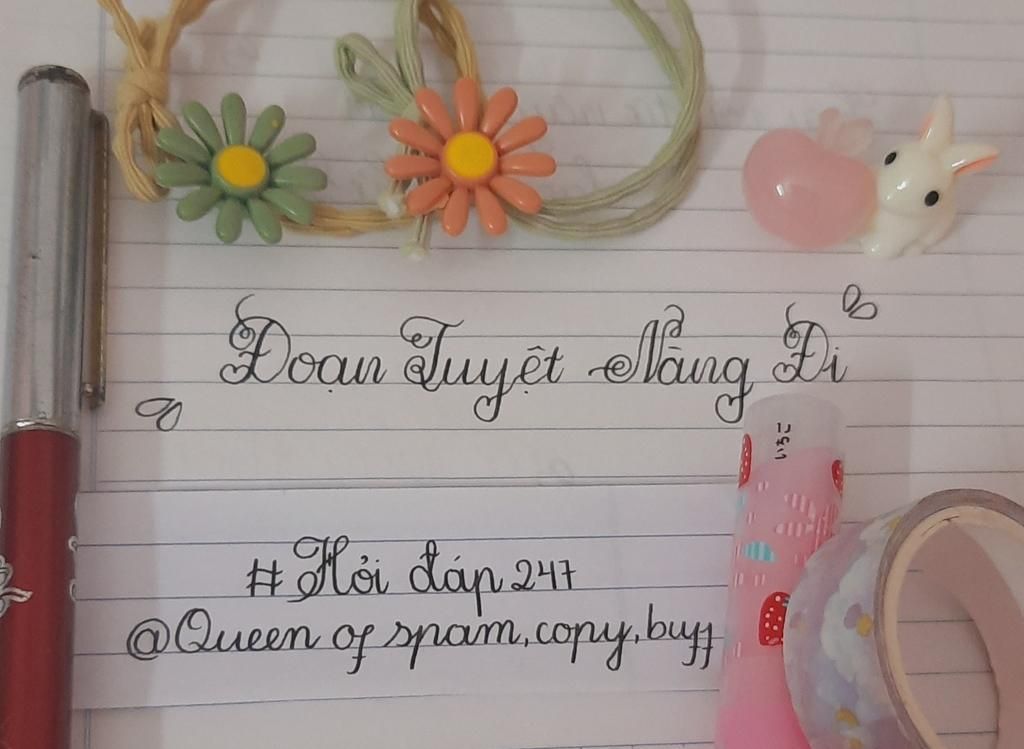 Đoạn Tuyệt Nắng Đi
いちご
#Hỏi đáp 247
@Queen of spam, copy, buff